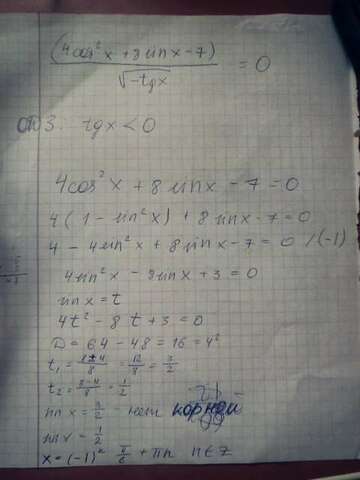 (4cos²x + 8sinx - 7) / √-tgx = 0
ОДЗ. tgx < 0
4cos²x + 8sinx - 7 = 0
4(1 - sin²x) + 8sinx - 7 = 0
4 - 4sin²x + 8sinx - 7 = 0 /(-1)
4sin²x - 8sinx + 3 = 0
sinx = t
4t² - 8t + 3 = 0
D = 64 - 48 = 16 = 4²
t₁ = 8+4/8 = 12/8 = 3/2
t₂ = 8-4/8 = 1/2
sinx = 3/2 - нет корней
sinx = 1/2
x = (-1)ⁿ π/6 + πn n∈Z